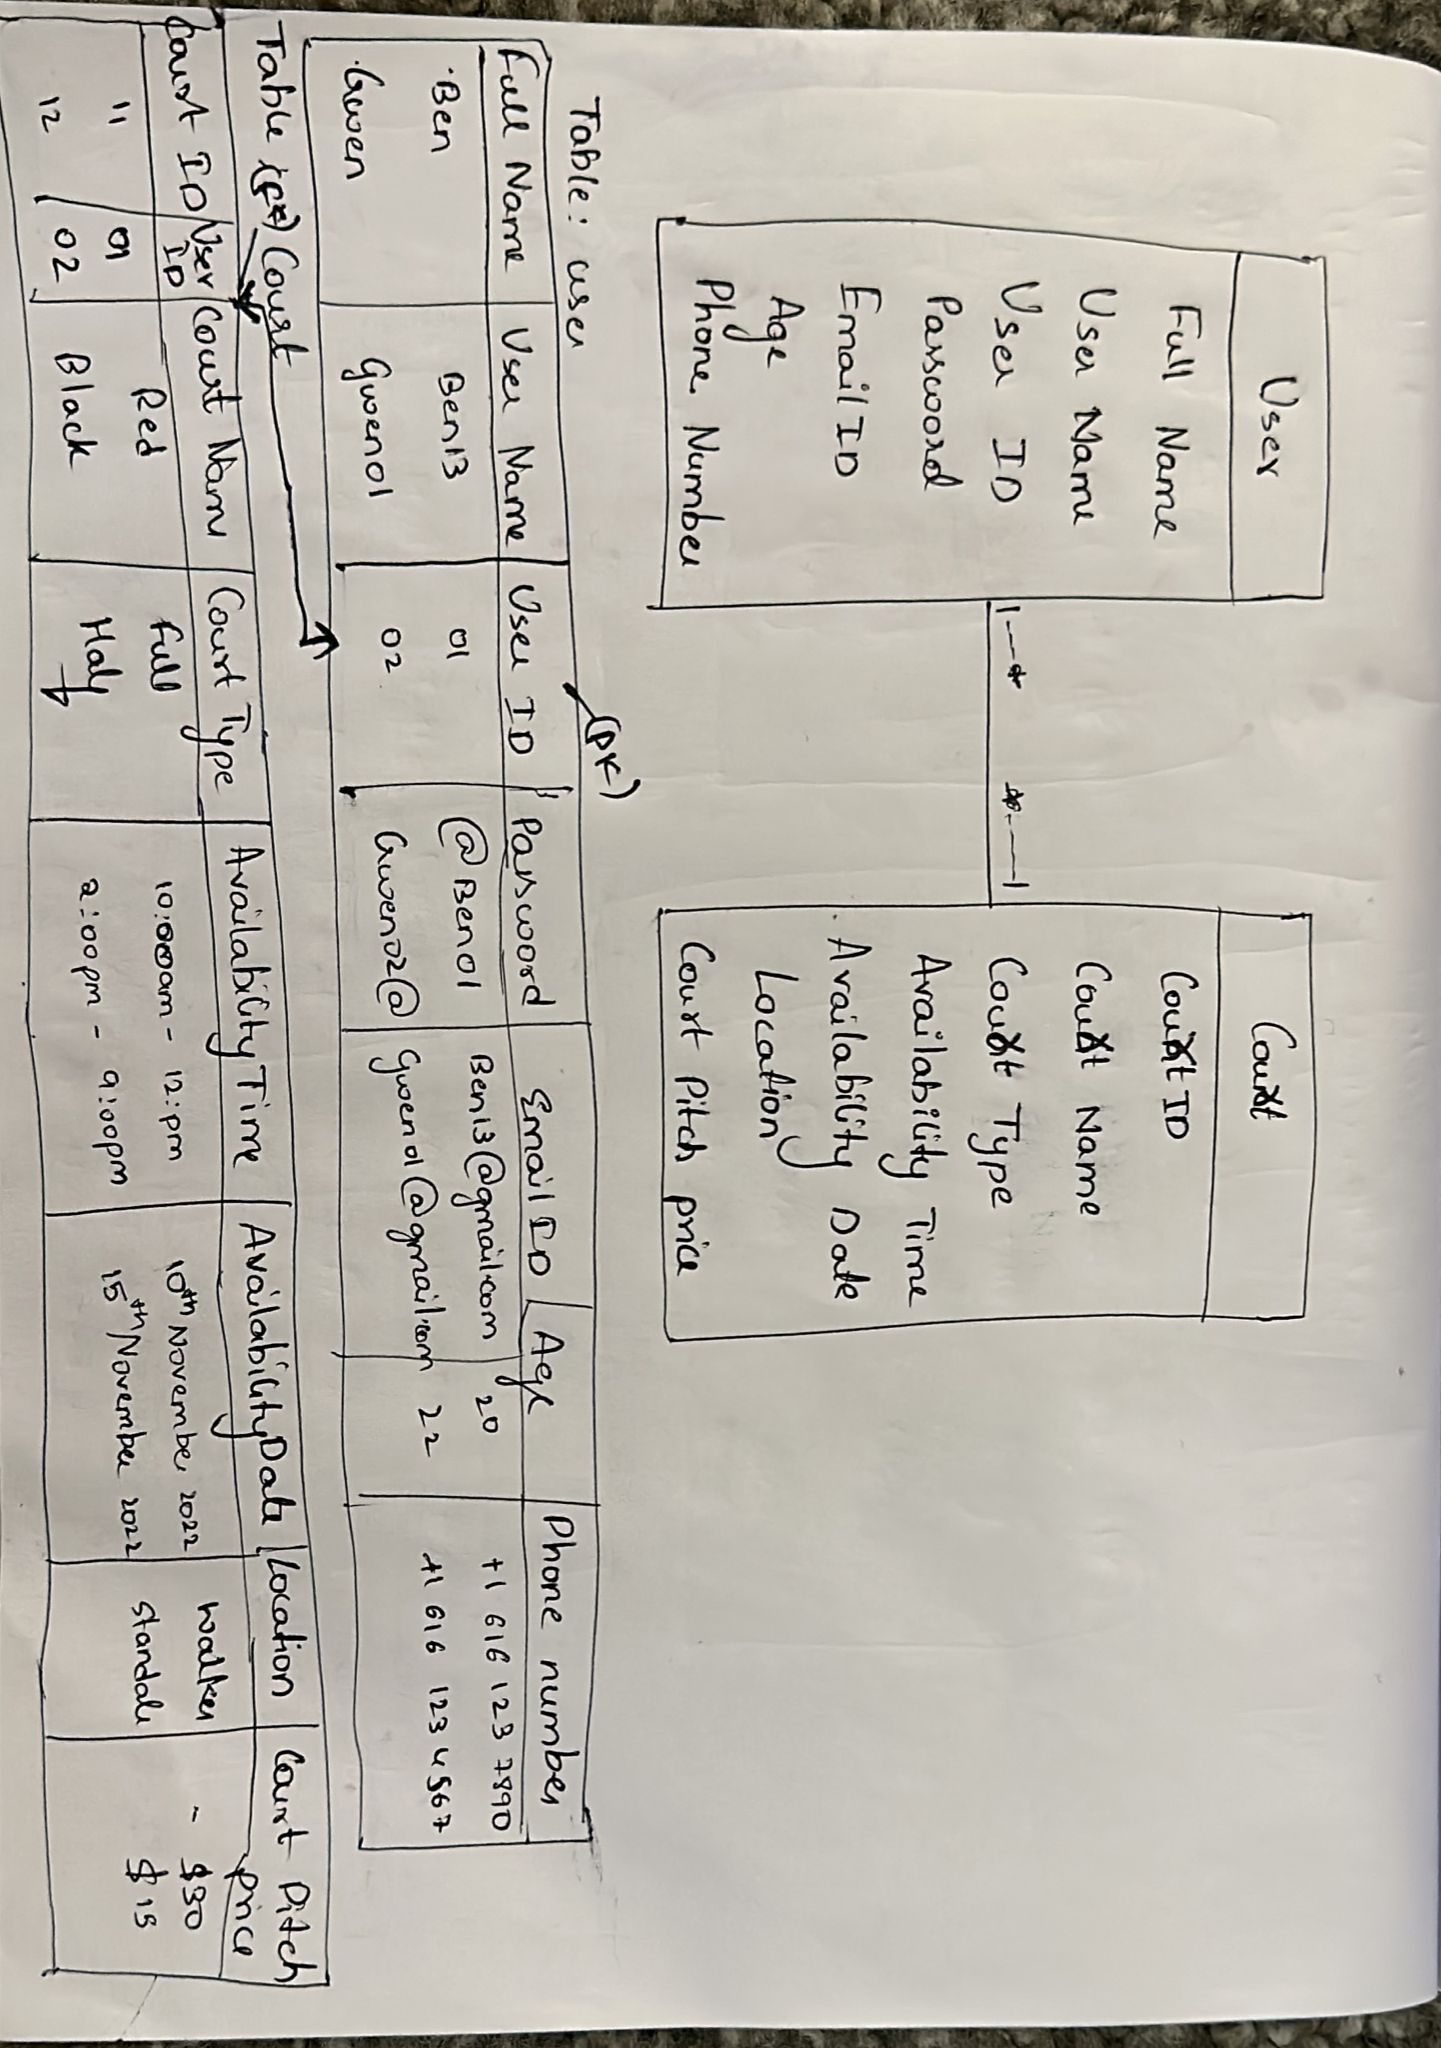 User
Full Name
User Name
User ID
Password
Email ID
Age
Phone Number
1---*
*---1
Court
Court ID
Court Name
Court Type
Availability Time
Availability Date
Location
Court Pitch price
Table: user
(PK)
Full Name User Name User ID Password Email ID Age Phone number
Ben Ben13 01 @Ben01 Ben13@gmail.com 20 +1 616 123 7890
Gwen Gwen01 02 Gwen02@ Gwen01@gmail.com 22 +1 616 123 4567
Table Court
Court ID User ID Court Name Court Type Availability Time Availability Date Location Court Pitch price
11 01 Red Full 10:00am - 12:pm 10th November 2022 walker - $30
12 02 Black Half 2:00pm - 9:00pm 15th November 2022 standale $15